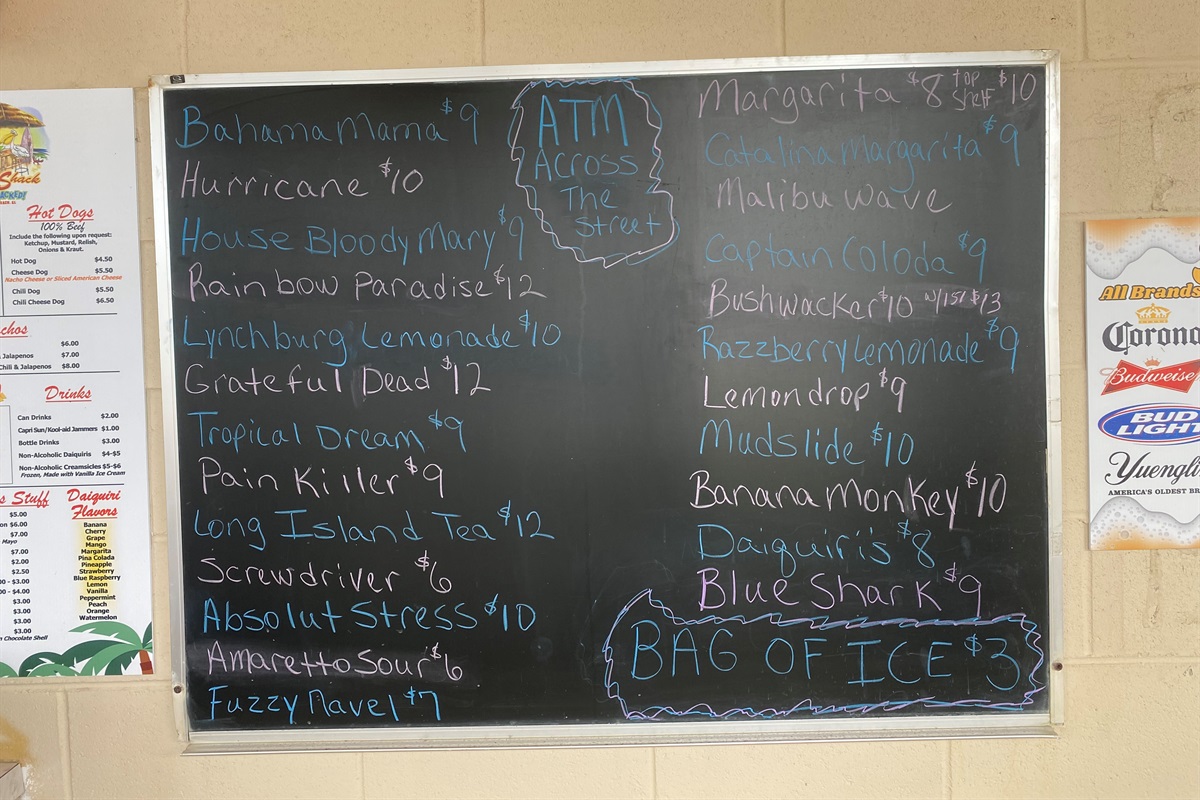 Bahama Mama $9
Hurricane $10
House Bloody Mary $9
Rainbow Paradise $12
Lynchburg Lemonade $10
Grateful Dead $12
Tropical Dream $9
Pain Killer $9
Long Island Tea $12
Screwdriver $6
Absolut Stress $10
Amaretto Sour $6
Fuzzy Navel $7
ATM
Across
The
Street
Margarita $8 top shelf $10
Catalina Margarita $9
Malibu wave
Captain Coloda $9
Bushwacker $10 w/151 $13
Razzberry Lemonade $9
Lemondrop $9
Mudslide $10
Banana Monkey $10
Daiquiris $8
Blue Shark $9
BAG OF ICE $3
Shack
Hot Dogs
100% Beef
Include the following upon request:
Ketchup, Mustard, Relish,
Onions & Kraut.
Hot Dog $4.50
Cheese Dog $5.50
Nacho Cheese or Sliced American Cheese
Chili Dog $5.50
Chili Cheese Dog $6.50
$6.00
Jalapenos $7.00
& Jalapenos $8.00
Drinks
Can Drinks $2.00
Capri Sun/Kool-aid Jammers $1.00
Bottle Drinks $3.00
Non-Alcoholic Daiquiris $4-$5
Non-Alcoholic Creamsicles $5-$6
Frozen, Made with Vanilla Ice Cream
Stuff
$5.00
$6.00
$7.00
Mayo
$7.00
$2.00
$2.50
- $3.00
- $4.00
$3.00
$3.00
$3.00
$3.00
Chocolate Shell
Daiquiri
Flavors
Banana
Cherry
Grape
Mango
Margarita
Pina Colada
Pineapple
Strawberry
Blue Raspberry
Lemon
Vanilla
Peppermint
Peach
Orange
Watermelon
All Brands
Corona
Budweiser
BUD
LIGHT
Yuengling
AMERICA'S OLDEST